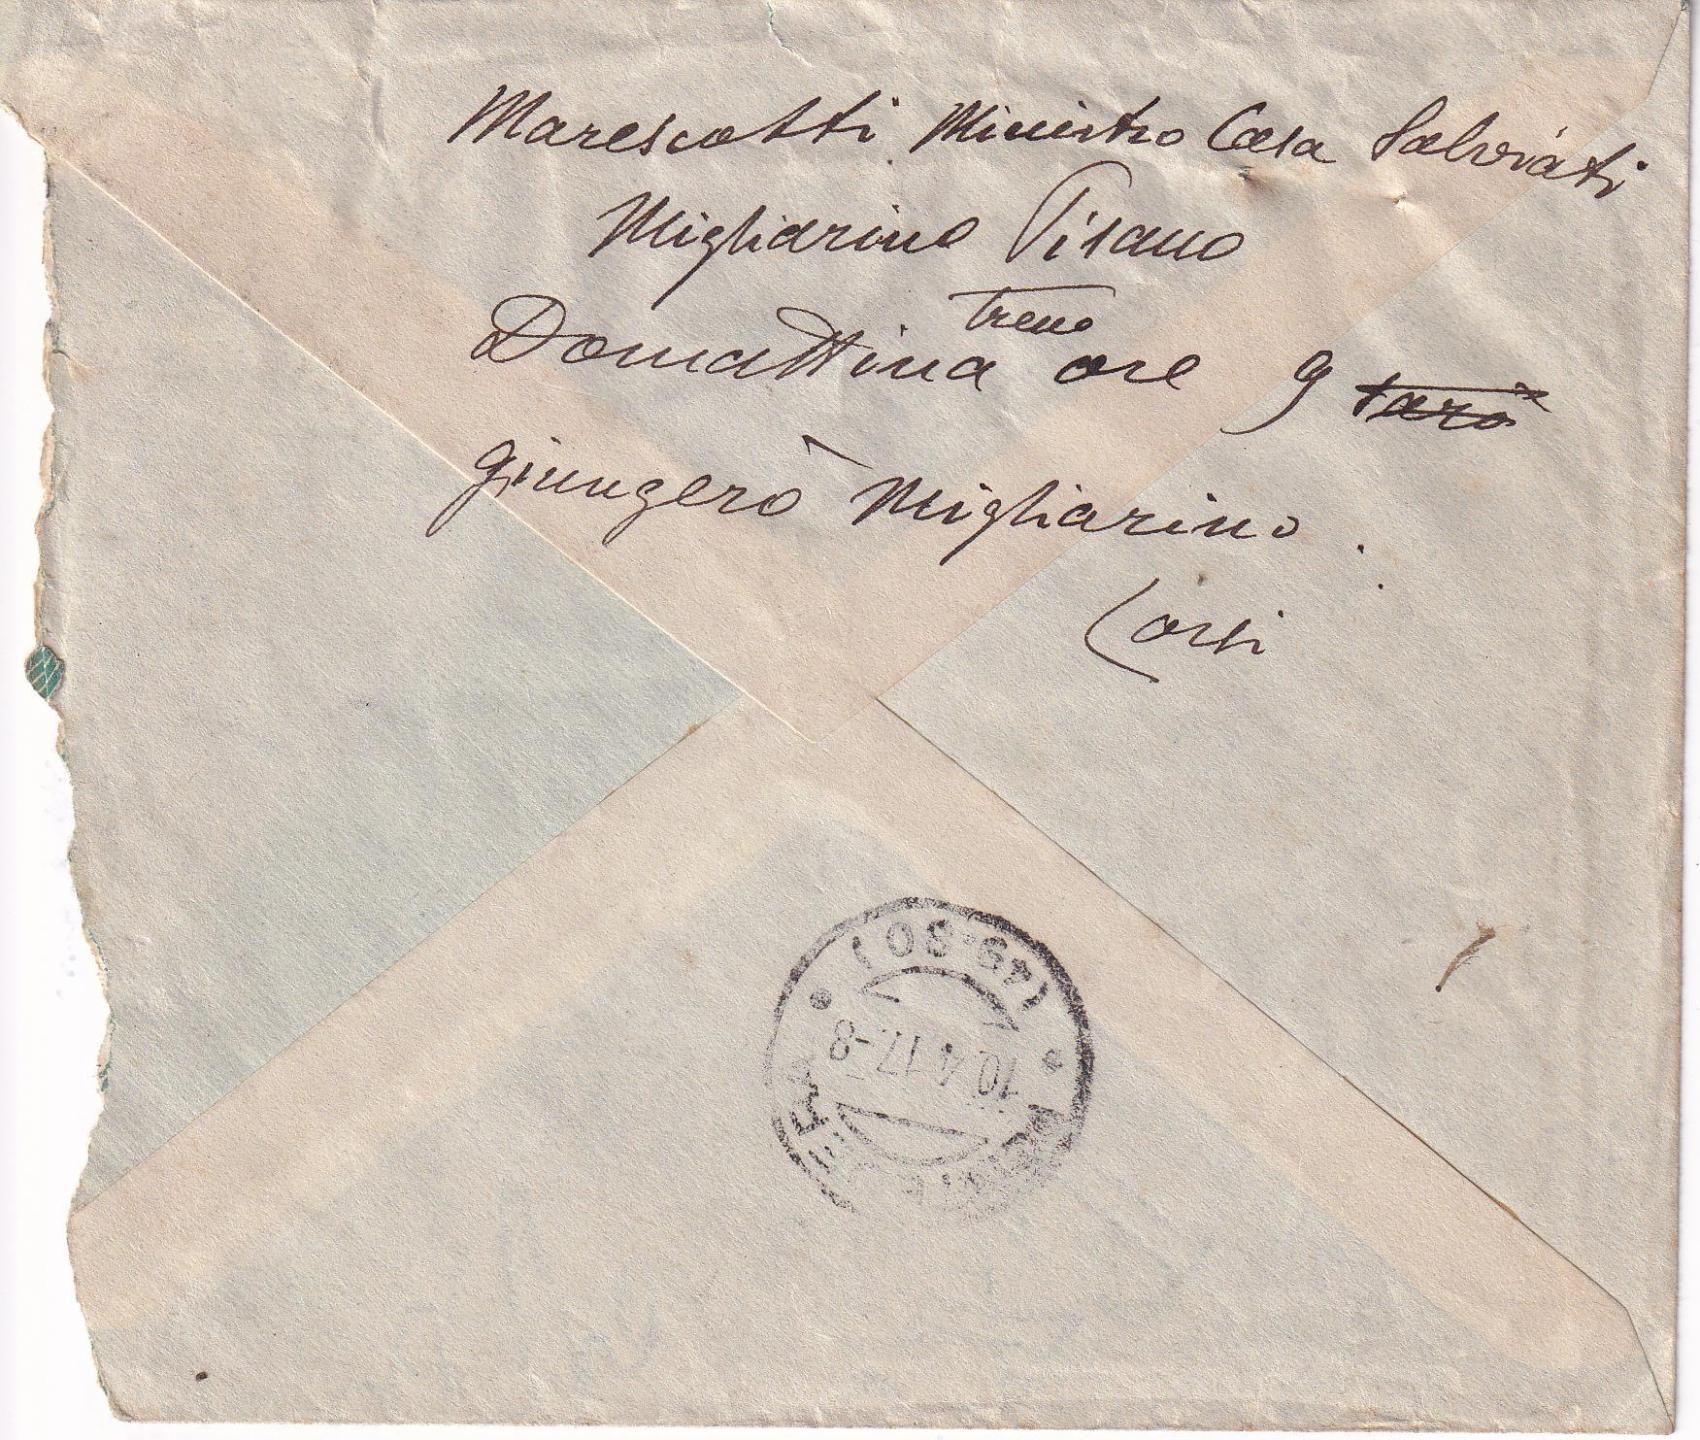 Marescotti Ministro Casa Salviati
Migliarino Pisano
treno
Domattina ore 9 sarò
giungerò Migliarino.
Corsi
(49-30)
10.4.17-8